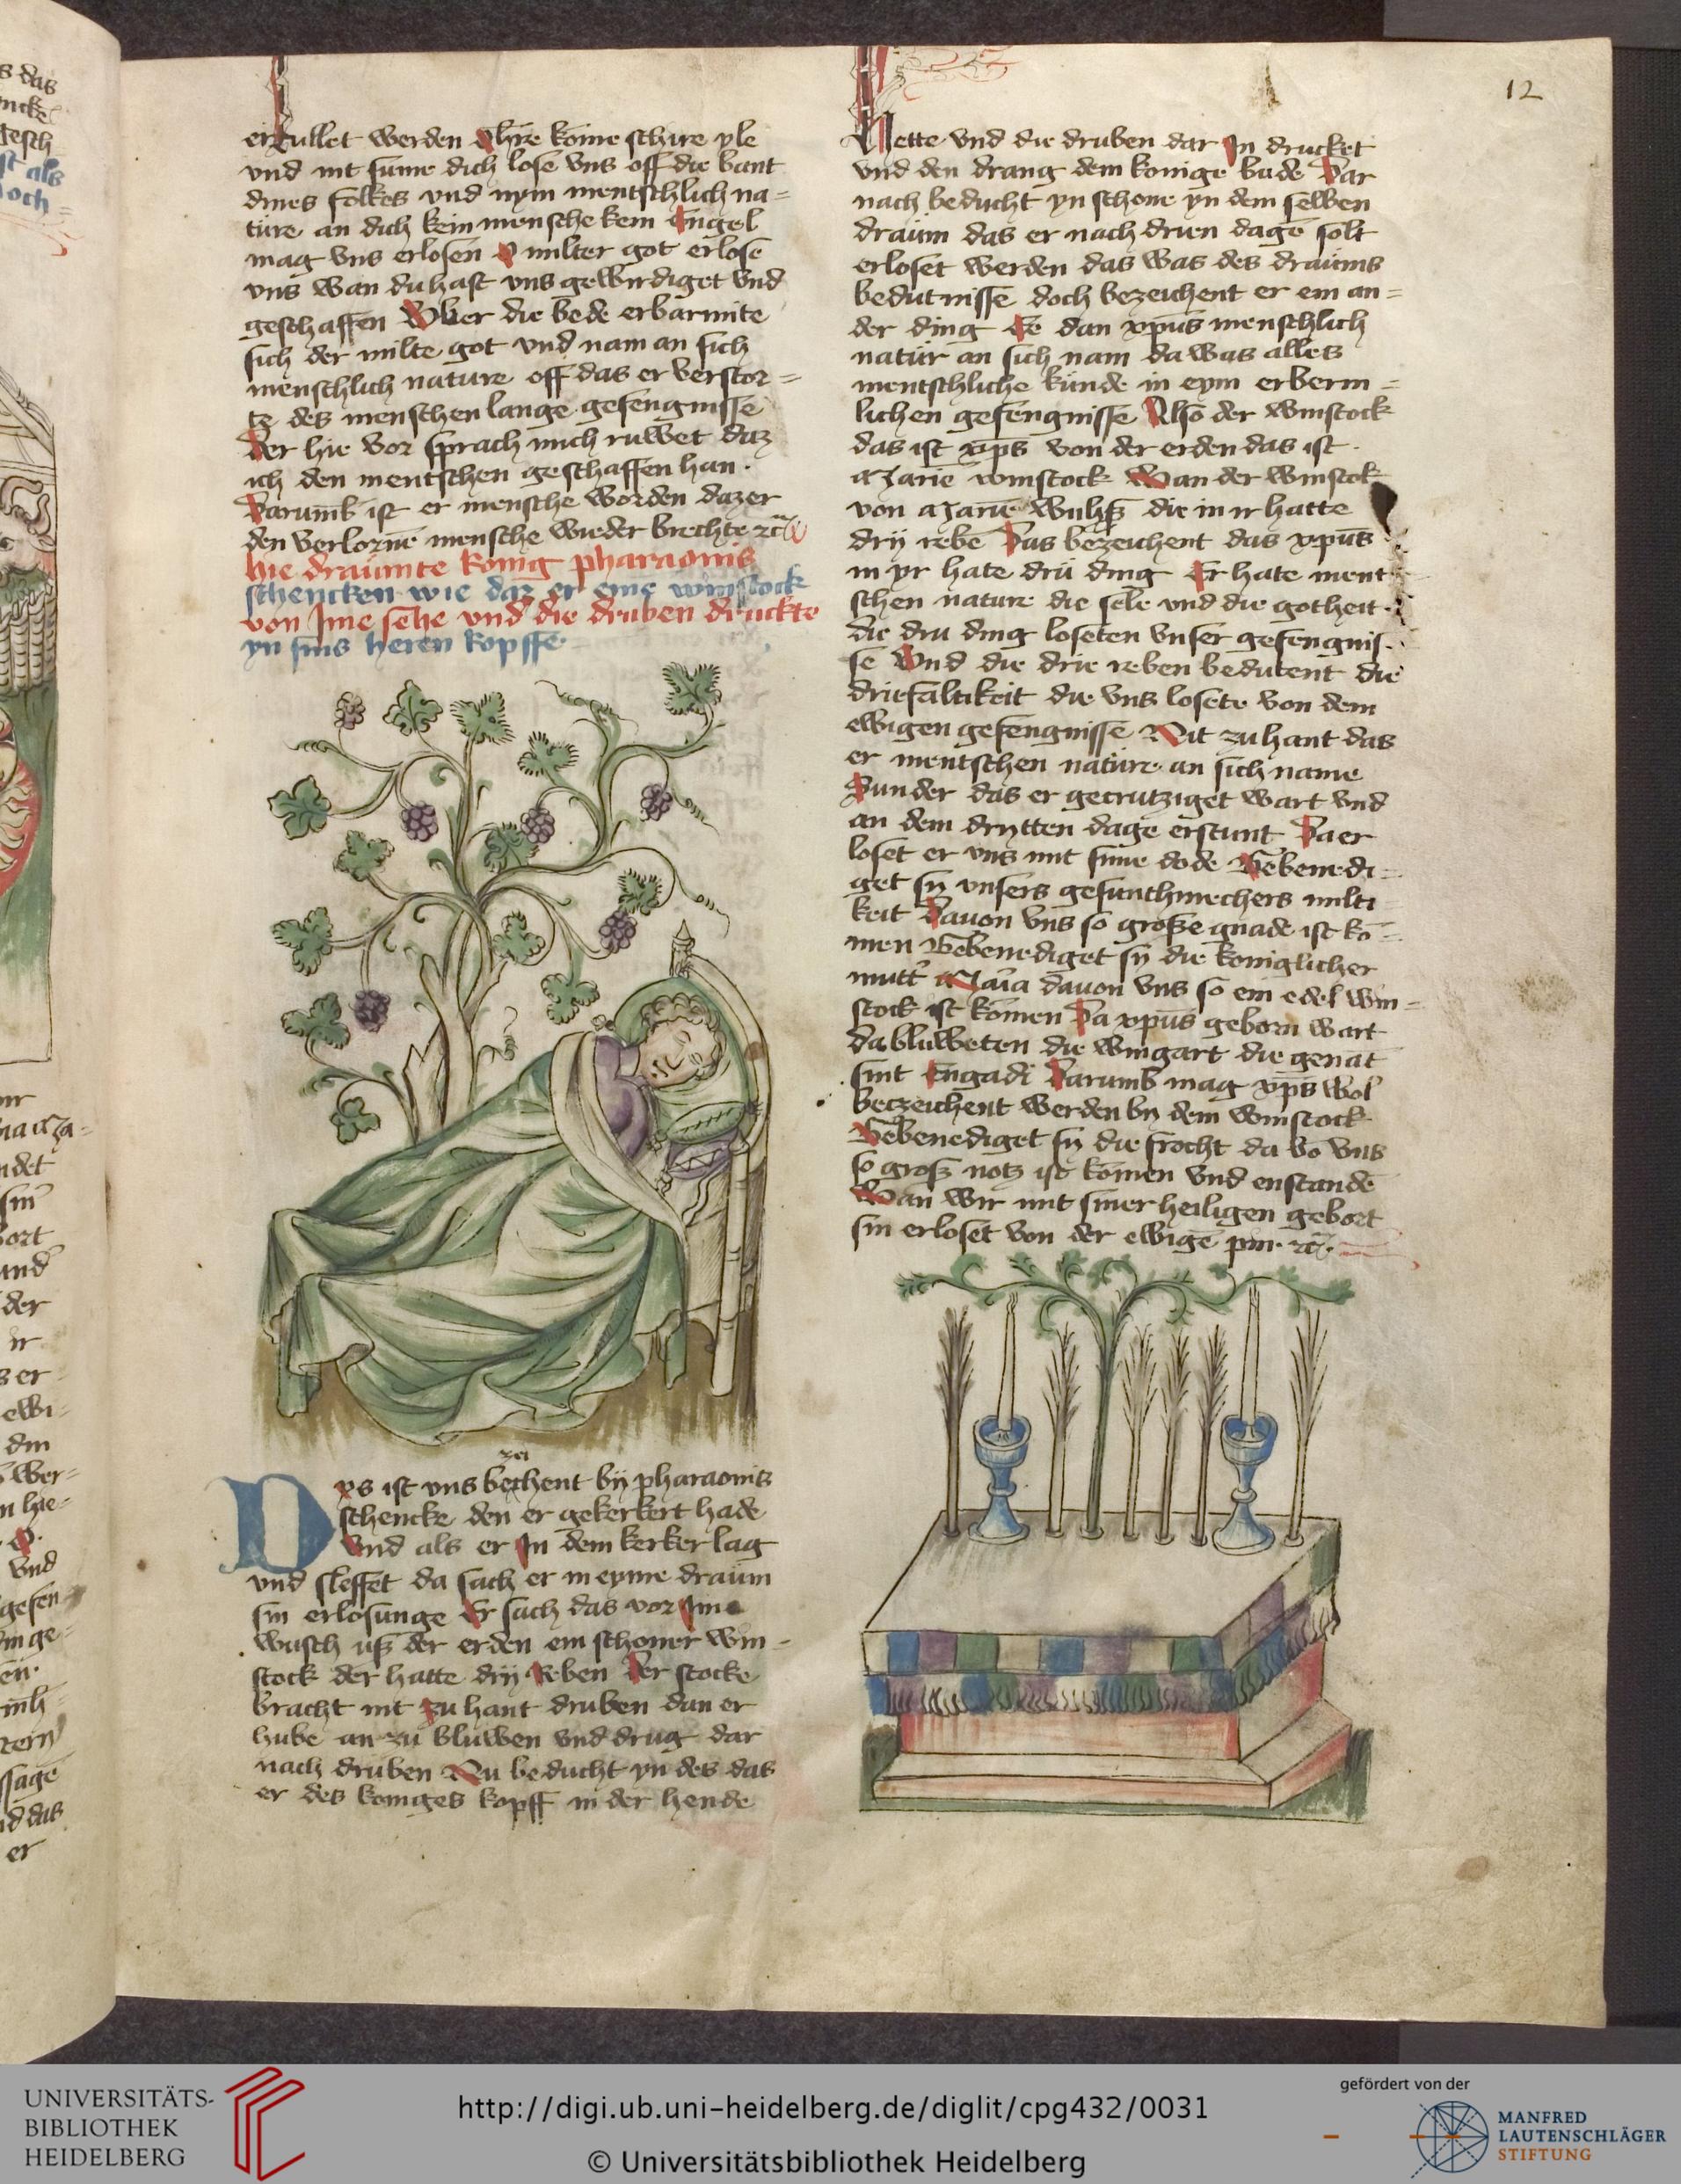 12
erfullet werden Ohre kome schire yle
vnd nit sume dich lose vns off die bant
dines folkes vnd nym mentschlich na=
ture an dich kein mensche kein Engel
mag vns erlosen O milter got erlose
vns wan du hast vns gewirdiget vnd
geschaffen Vber die bede erbarmite
sich der milte got vnd nam an sich
menschlich nature off das er verstor=
te des menschen lange gefengnisse
Der hie vor sprach mich ruwet daz
ich den mentschen geschaffen han.
Darumb ist er mensche worden daz er
den verlorne mensche wieder brechte
Hie draumte konig pharaonis
schencken wie daz er eine winstock
von Ime sehe vnd die druben druckte
yn sins heren kopffe
Dys ist vns bezeichent by pharaonis
schencke den er gekerkert hade
Vnd als er In dem kerker lag
vnd sleffet da sach er in eyme draum
sin erlosunge Er sach das vor Ime
wusch uß der erden ein schoner win=
stock der hatte drij Reben Der stocke
bracht nit zu hant druben dan er
hube an zu bluwen vnd drug dar
nach druben Nu beducht yn des das
er des koniges kopff in der hende
Hette vnd die druben dar In drucket
vnd den drang dem konige bude Dar
nach beducht yn schone yn dem selben
draum das er nach drien dage solt
erloset werden das was des draums
bedutnisse doch bezeichent er ein an=
der ding Ee dan xpus menschlich
natur an sich nam da was alles
mentschliche kunde in eym erberm=
lichen gefengnisse Also der winstock
das ist xps von der erden das ist
Marie winstock Wan der winstok
von Marie wuhß die in ir hatte
drij rebe Das bezeichent das xpus
in yr hate dru ding Er hate ment
schen nature die sele vnd die gotheit.
die dru ding loseten vnser gefengnis.
se Vnd die drie reben bedutent die
driefaltikeit die vns losete von dem
ewigen gefengnisse Nit zu hant das
er mentschen nature an sich name
Sunder das er gecrutziget wart vnd
an dem drytten dage erstunt Da er
loset er vns mit sime dode Gebenedi=
get sy vnsers gesunthmechers milti
keit Dauon vns so große gnade ist ko=
men Gebenediget sy die koniglicher
mutter Maria dauon vns so ein edel win=
stock ist komen Da xpus geborn wart
da bluweten die wingart die genat
sint Engadi Darumb mag xps wol
beczeichent werden by dem winstock
Gebenediget sy die frocht da vo vns
so groß notz ist komen vnd enstande
Wan wir mit siner heiligen gebort
sin erloset von der ewige pin
UNIVERSITÄTS-
BIBLIOTHEK
HEIDELBERG
http://digi.ub.uni-heidelberg.de/diglit/cpg432/0031
© Universitätsbibliothek Heidelberg
gefördert von der
MANFRED
LAUTENSCHLÄGER
STIFTUNG